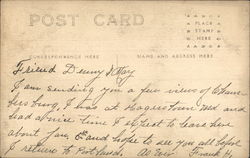 POST CARD
PLACE
STAMP
HERE
CORRESPONDENCE HERE
NAME AND ADDRESS HERE
Friend Denny & May
I am sending you a few views of Cham
bersburg, I was at Hagerstown Md and
had a nice time I expect to leave here
about Jan, 6th and hope to see you all before
I return to Portland. As Ever Frank H.